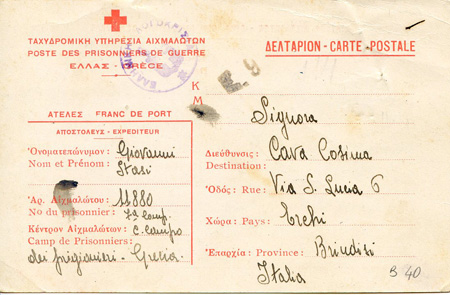 ΤΑΧΥΔΡΟΜΙΚΗ ΥΠΗΡΕΣΙΑ ΑΙΧΜΑΛΩΤΩΝ
POSTE DES PRISONNIERS DE GUERRE
ΕΛΛΑΣ - GRÈCE
ΔΕΛΤΑΡΙΟΝ - CARTE - POSTALE
Κ
Μ
ΑΤΕΛΕΣ FRANC DE PORT
ΑΠΟΣΤΟΛΕΥΣ - EXPEDITEUR
Ὀνοματεπώνυμον: Giovanni
Nom et Prénom: Stasi
Ἀρ. Αἰχμαλώτου: 11880
No du prisonnier: 7a Comp.
Κέντρον Αἰχμαλώτων: C. Campo
Camp de Prisonniers:
dei prigionieri - Grecia.
Signora
Διεύθυνσις: Cava Cosima
Destination:
Ὁδός: Rue: Via S. Lucia 6
Χώρα: Pays: Erchi
Ἐπαρχία: Province: Brindisi
Italia
B 40